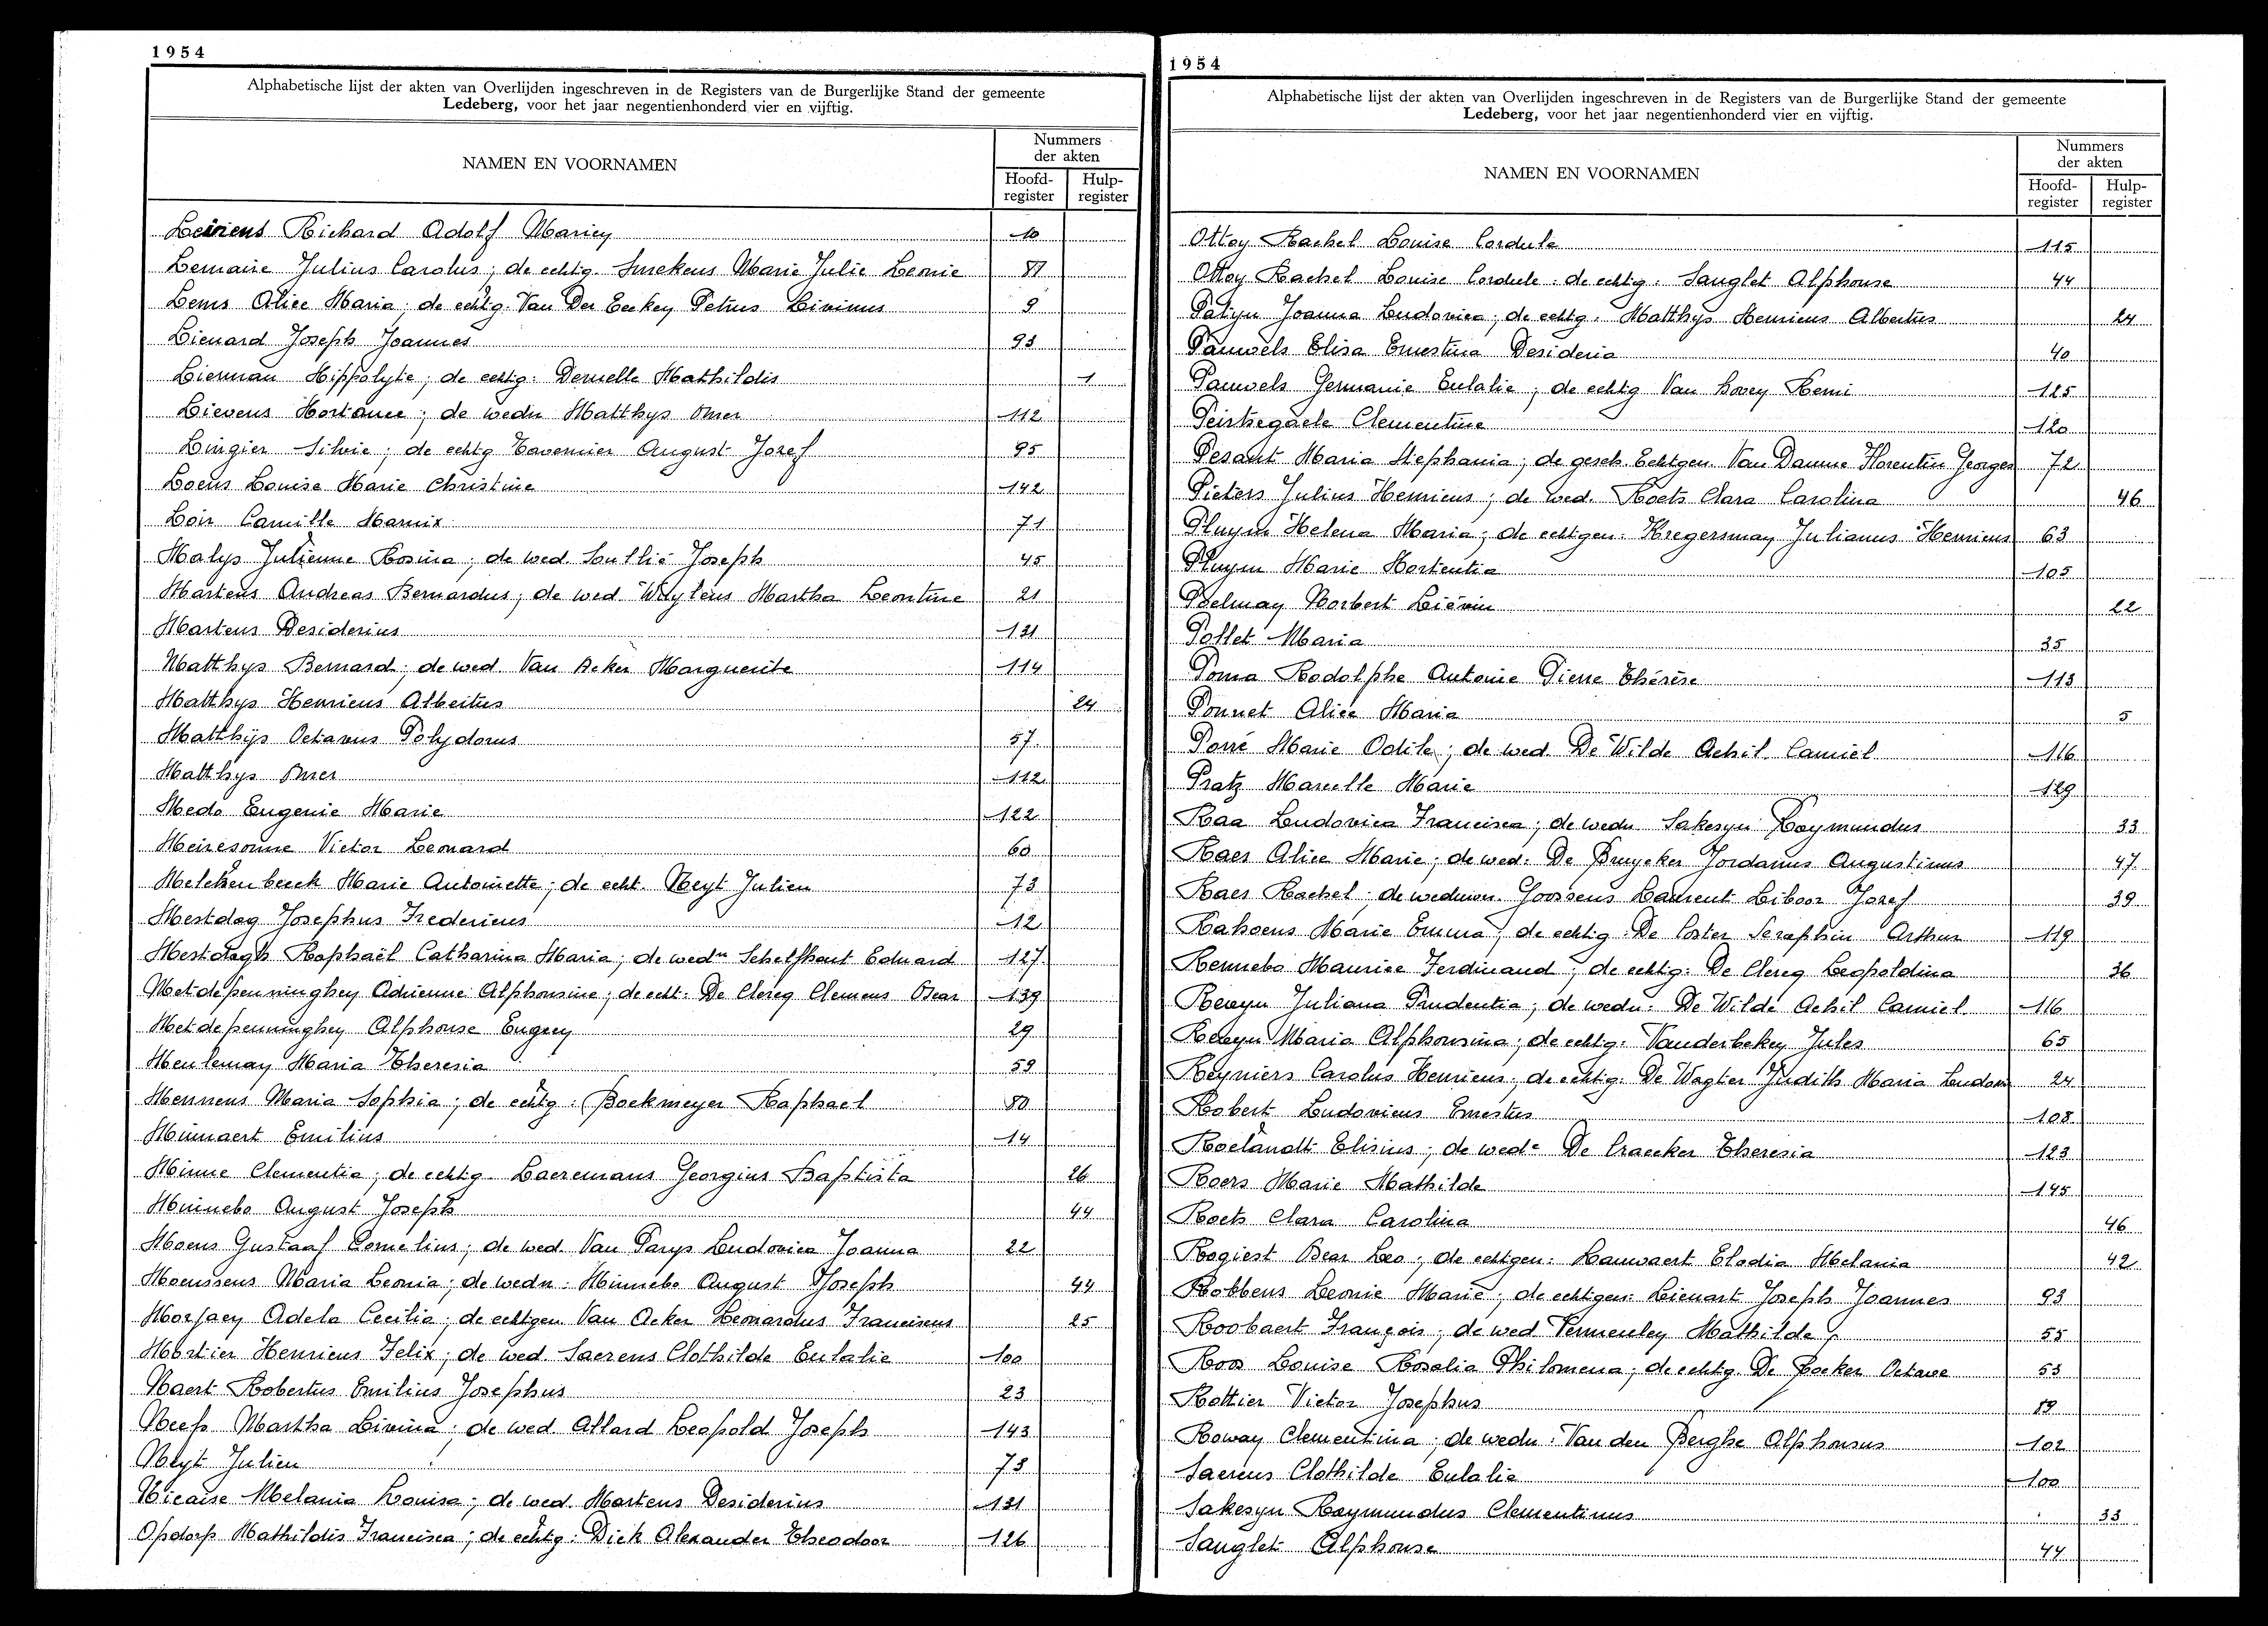 1954
Alphabetische lijst der akten van Overlijden ingeschreven in de Registers van de Burgerlijke Stand der gemeente
Ledeberg, voor het jaar negentienhonderd vier en vijftig.
NAMEN EN VOORNAMEN
Nummers
der akten
Hoofd-
register
Hulp-
register
Richard Adolf 10
Lemaire Julius Carolus; de echtg. Smekens Marie Julie Leonie
Lems Alice Maria; de echtg. Van Der Petrus Livinus 9
Lienard Joseph Joannes 93
Lierman Hippolyte; de echtg. Mathildis 1
Lievens Hortance; de wedn Matthys Omer 112
Lingier Silvie; de echtg Tavernier August Jozef 95
Loens Louise Marie Christine 142
Loir Camille Marnix 71
Malys Julienne Rosina; de wed. Joseph 45
Martens Andreas Bernardus; de wed Martha Leontine 21
Martens Desiderius 131
Matthys Bernard; de wed Van Acker Marguerite 114
Matthys Henricus Albertus 24
Matthijs Octavus Polydorus 57
Matthys Omer 112
Medo Eugenie Marie 122
Meiresonne Victor Leonard 60
Marie Antoinette; de echt. Neyt Julien 73
Mestdag Josephus Fredericus 12
Mestdagh Raphaël Catharina Maria; de wedn Schelfhout Eduard 127
Metdepenninghen Adrienne Alphonsine; de echt. De Clercq Clemens Oscar 139
Metdepenninghen Alphonse Eugeen 29
Meuleman Maria Theresia 59
Mennens Maria Sophia; de echtg: Boekmeyer Raphael 80
Minnaert Emilius 14
Minne Clementia; de echtg Laeremans Georgius Baptista 26
Minnebo August Joseph 44
Moens Gustaaf Cornelius; de wed. Van Parys Ludovica Joanna 22
Moenssens Maria Leonia; de wedn: Minnebo August Joseph 44
Adela Cecilia; de echtgen Van Acker Leonardus Franciscus 25
Mortier Henricus Felix; de wed Saerens Clothilde Eulalie 100
Naert Robertus Emilius Josephus 23
Neefs Martha Livina; de wed Allard Leopold Joseph 143
Neyt Julien 73
Nicaise Melania Louisa; de wed. Martens Desiderius 131
Opdorp Mathildis Francisca; de echtg: Dick Alexander Theodoor 126
1954
Alphabetische lijst der akten van Overlijden ingeschreven in de Registers van de Burgerlijke Stand der gemeente
Ledeberg, voor het jaar negentienhonderd vier en vijftig.
NAMEN EN VOORNAMEN
Nummers
der akten
Hoofd-
register
Hulp-
register
Ottoy Rachel Louise Cordule 115
Ottoy Rachel Louise Cordule: de echtg: Sanglet Alphonse 44
Patijn Joanna Ludovica; de echtg. Matthys Henricus Albertus 24
Pauwels Elisa Ernestina Desideria 40
Pauwels Germanie Eulalie; de echtg Van Hovey Remi 125
Peirtregaele Clementine 120
Pesant Maria Stephania; de gesch. Echtgen. Van Damme Florentin Georges 72
Pieters Julius Henricus; de wed. Roets Clara Carolina 46
Pluym Helena Maria; de echtgen: Kregersman Julianus Henricus 63
Pluym Marie Hortentia 105
Poelman Norbert Liévin 22
Pollet Maria 35
Poma Rodolphe Antonie Pierre Thérèse 113
Ponnet Alice Maria 5
Porré Marie Odile; de wed. De Wilde Achil Camiel 116
Pratz Marcelle Marie 129
Raa Ludovica Francisca; de wedn Sakesyn Raymundus 33
Raes Alice Marie; de wed. De Bruycker Jordanus Augustinus 47
Raes Rachel; de Goossens Laurent Liboor Jozef 39
Rahoens Marie Emma; de echtg: De Coster Seraphin Arthur 119
Rennebo Maurice Ferdinand; de echtg: De Clercq Leopoldina 36
Revyn Juliana Prudentia; de wedn: De Wilde Achil Camiel 116
Revyn Maria Alphonsina; de echtg: Vanderbeken Jules 65
Reyniers Carolus Henricus; de echtg: De Wagter Judith Maria Ludov 24
Robert Ludovicus Ernestus 108
Roelandt Elisius; de wede De Craecker Theresia 123
Roers Marie Mathilde 145
Roets Clara Carolina 46
Rogiest Oscar Leo; de echtgen: Lauwaert Elodia Melania 42
Robbens Leonie Marie; de echtgen: Lienart Joseph Joannes 93
Roobaert François; de wed Mathilde 55
Roos Louise Rosalia Philomena; de echtg. De Backer Octave 53
Rottier Victor Josephus 19
Roway Clementina; de wedn: Van den Berghe Alphonsus 102
Saerens Clothilde Eulalie 100
Sakesyn Raymundus Clementinus 33
Sanglet Alphonse 44